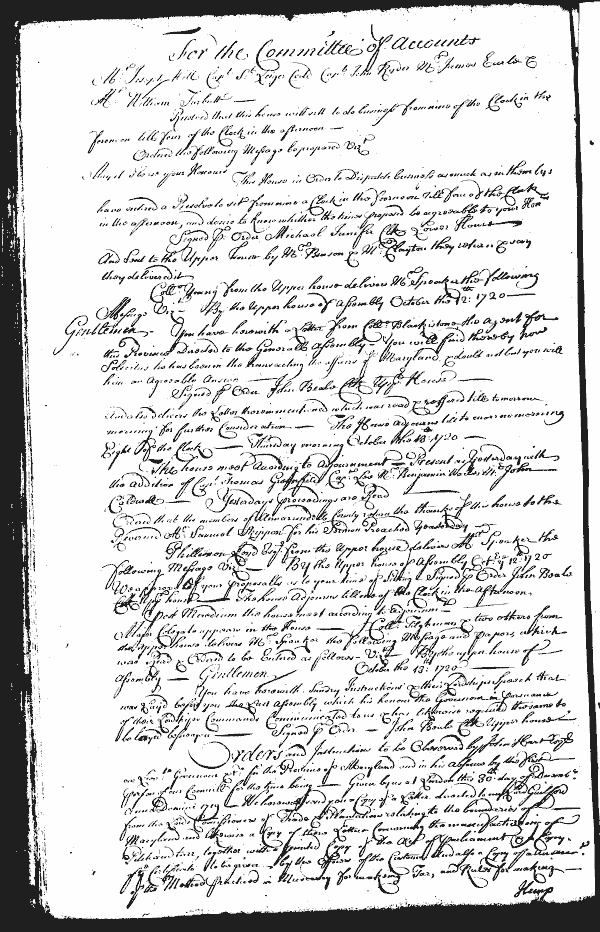 For the Committee of Accounts
Mr Joseph Hill Capt St Leger Codd Capt John Ryder Mr James Earle &
Mr William Turbutt —
Resolved that this house will sitt to do business from nine of the Clock in the
forenoon till four of the Clock in the afternoon —
Ordered the following Message be prepared Vizt
May it please your Honours
This House in Order to Dispatch business as much as in them lyes
have entred a Resolve to sitt from nine a Clock in the forenoon till four of the Clock
in the afternoon, and desire to know whether the times proposed be agreeable to your Honrs
Signed p Order Michael Jenifer Clk Lower House
And sent to the Upper house by Mr and Mr Clayton they return & say
they delivered it
Collo Young from the Upper house delivers Mr Speaker the following
Message Vizt — By the Upper house of Assembly October the 12th 1720
Gentlemen. You have herewith a Letter from Collo Blackistone the Agent for
this Province Directed to the Generall Assembly. You will find thereby how
Solicitous he has been in the transacting the affairs of Maryland, & doubt not but you will
him an Agreeable Answer —
Signed p Order John Beale Clk Uppr House —
And also delivers the Letter therein mentioned which was read & referred till to morrow
morning for further Consideration — The House Adjourns till to morrow morning
Eight of the Clock — Thursday morning October the 13th 1720 —
The house meet According to Adjournment — Present as Yesterday with
the addition of Capt Thomas Capt Mr Benjamin Mr John
Caldwell — Yesterdays proceedings are Read
Ordered that the members of Annarundell County return the thanks of this house to the
Reverend Mr Samuel Skippon for his Sermon Preached Yesterday
Philemon Lloyd Esqr from the Upper house delivers Mr Speaker the
following Message Vizt — By the Upper house of Assembly Octobr 12th 1720
We approve of your proposalls as to your time of Sitting Signed p Order John Beale
Clk Uppr house — The house Adjourns till two of the Clock in the Afternoon.
Post Meridiem the house meet according to Adjournment
Major appears in the House — Collo Tilghman & two others from
the Upper house delivers Mr Speaker the following Message and papers, which
was read & Ordered to be Entred as follows Vizt By the upper house of
Assembly — Gentlemen October the 13th 1720
You have herewith Sundry Instructions & their Lordships Speech that
was Layd before you the last Assembly which his honour the Governour in persuance
of their Lordships Commands Communicated to us & desire likewise required the same to
be layed before you — Signed p Order — John Beale Clk Upper house
Orders and Instructions to be Observed by John Hart Esqr
our Lieut Governour for the Province of Maryland and in his Absence by the
of our Councill for the time being — Given by us at London this 30th day of
Annoq Domini — We herewith send you Copy of a Letter directed to
from the Lords Commissioners of Trade & Plantations relating to the boundaries of
Maryland and likewise a Copy of their Letter Concerning the manufacturing of
Pitch and tarr, together with a printed Copy of the Act of Parliament & a Copy
of a Certificate to be given by the Officers of the Customs and also a Copy of an
of the Method practiced in Muscovy for making Tar, and Rules for making
Hemp